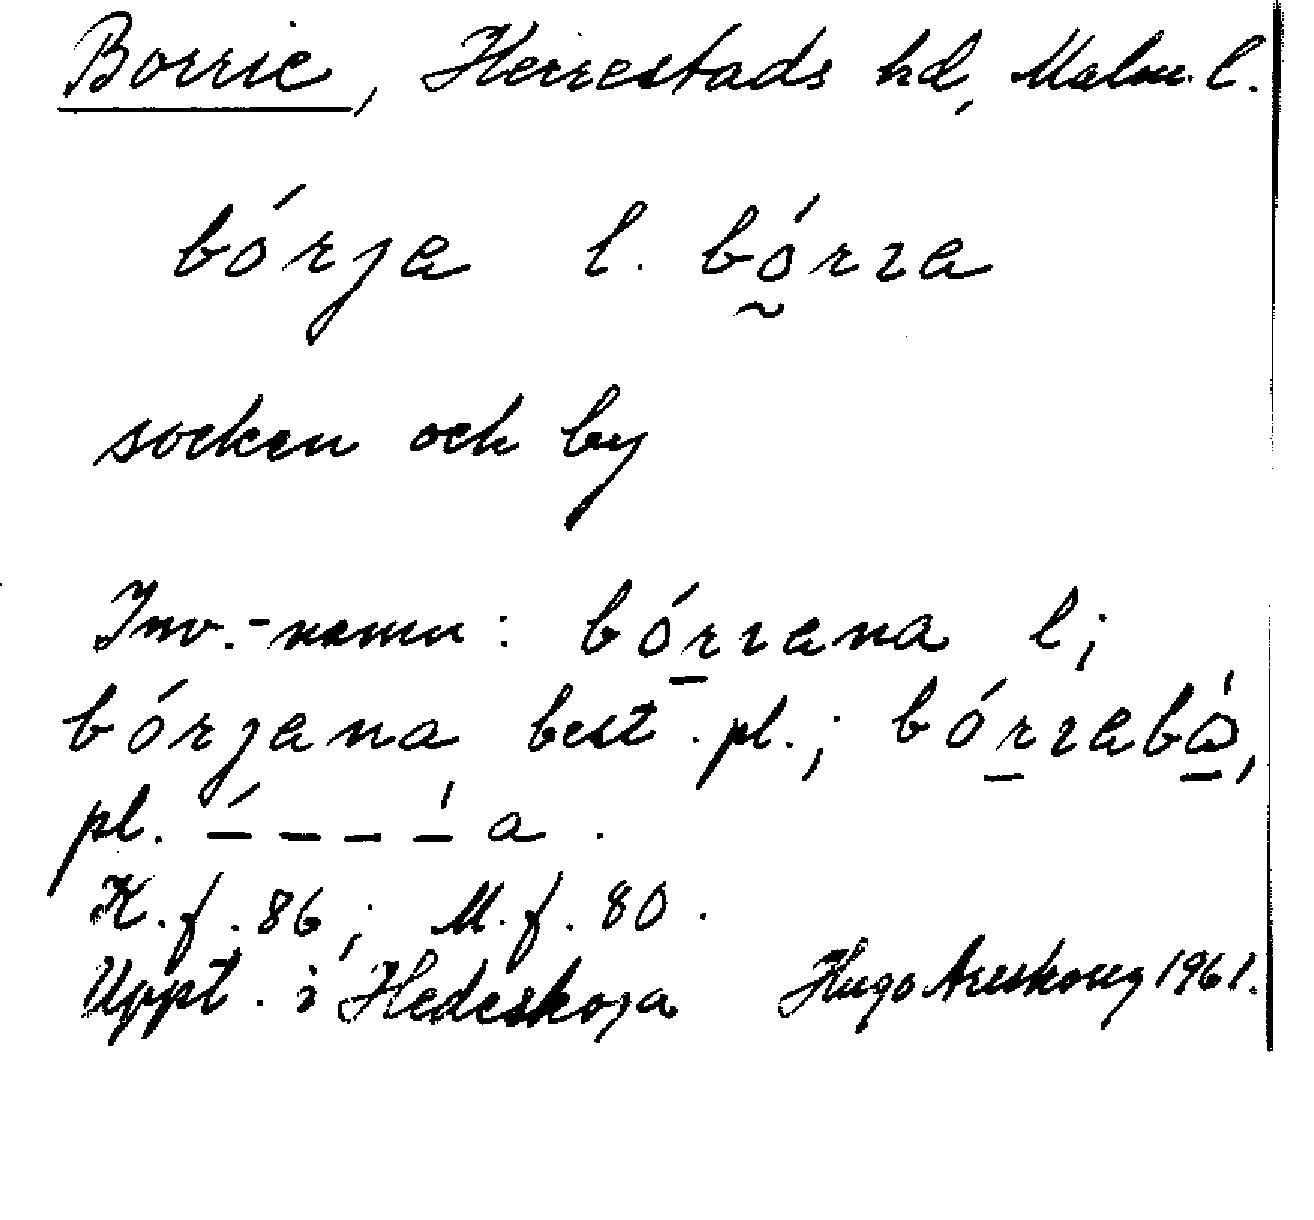 Borrie, Herrestads hd, Malm. l.
bórja l. bórɿa
socken och by
Inv.-namn: bórɿana l;
bórjana best. pl.; bórɿabó,
pl. ––––a.
K.f. 86; M.f. 80.
Uppt. i Hedeskoga Hugo Areskoug 1961.